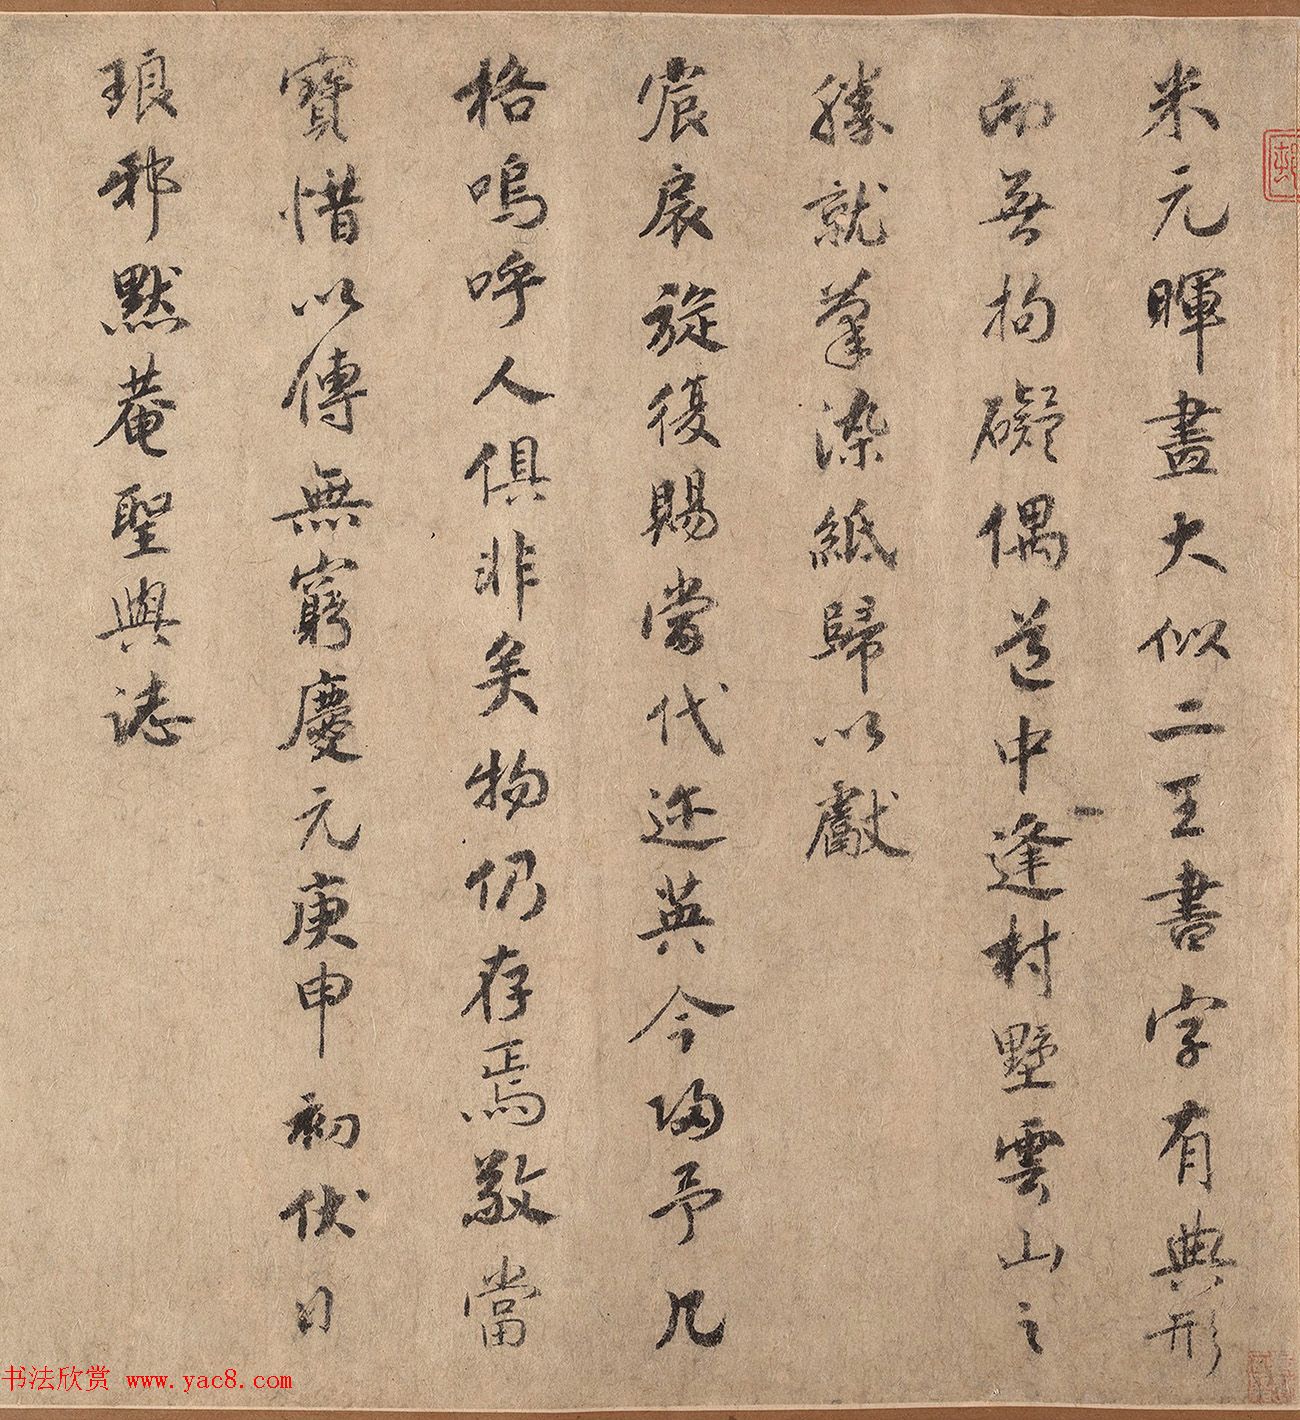 米元暉畫大似二王書字有典形
而无拘礙偶道中逢村墅雲山之
勝就筆染紙歸以獻
宸扆旋復賜當代迩英今歸予几
格嗚呼人俱非矣物仍存焉敬當
寶惜以傳無窮慶元庚申初伏日
琅邪默菴聖與誌
书法欣赏 www.yac8.com